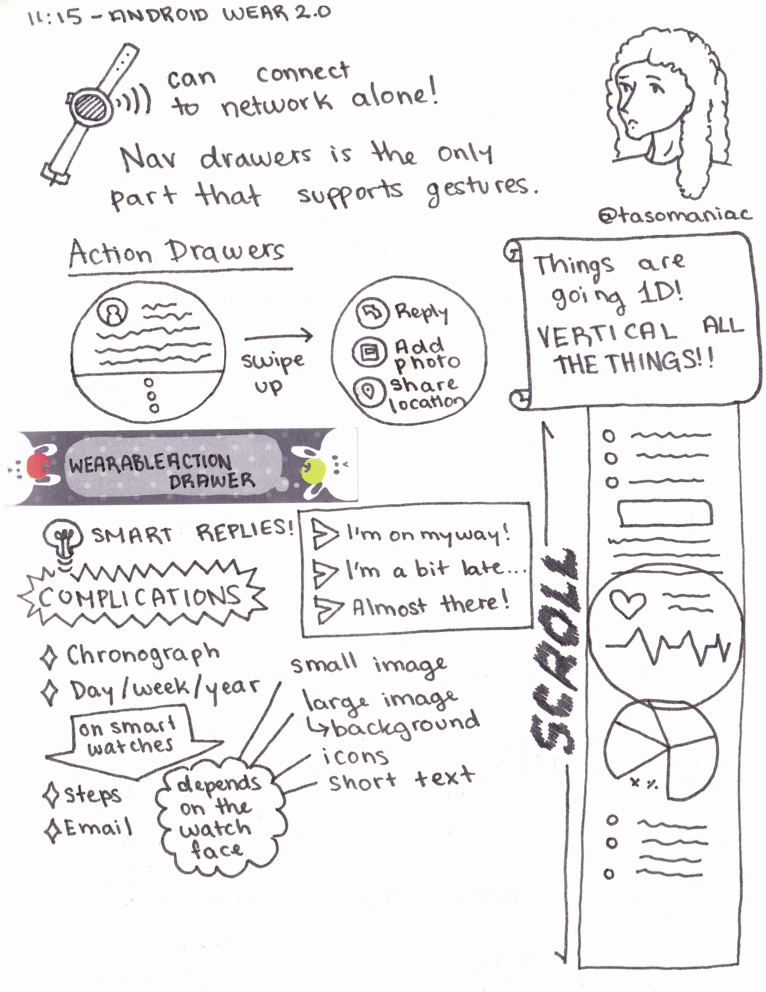 11:15 - ANDROID WEAR 2.0
can connect
to network alone!
Nav drawers is the only
part that supports gestures.
@tasomaniac
Action Drawers
swipe
up
Reply
Add
photo
share
location
Things are
going 1D!
VERTICAL ALL
THE THINGS!!
WEARABLEACTION
DRAWER
SMART REPLIES!
I'm on my way!
I'm a bit late...
Almost there!
COMPLICATIONS
Chronograph
Day/week/year
on smart
watches
Steps
Email
depends
on the
watch
face
small image
large image
↳background
icons
short text
SCROLL
x %